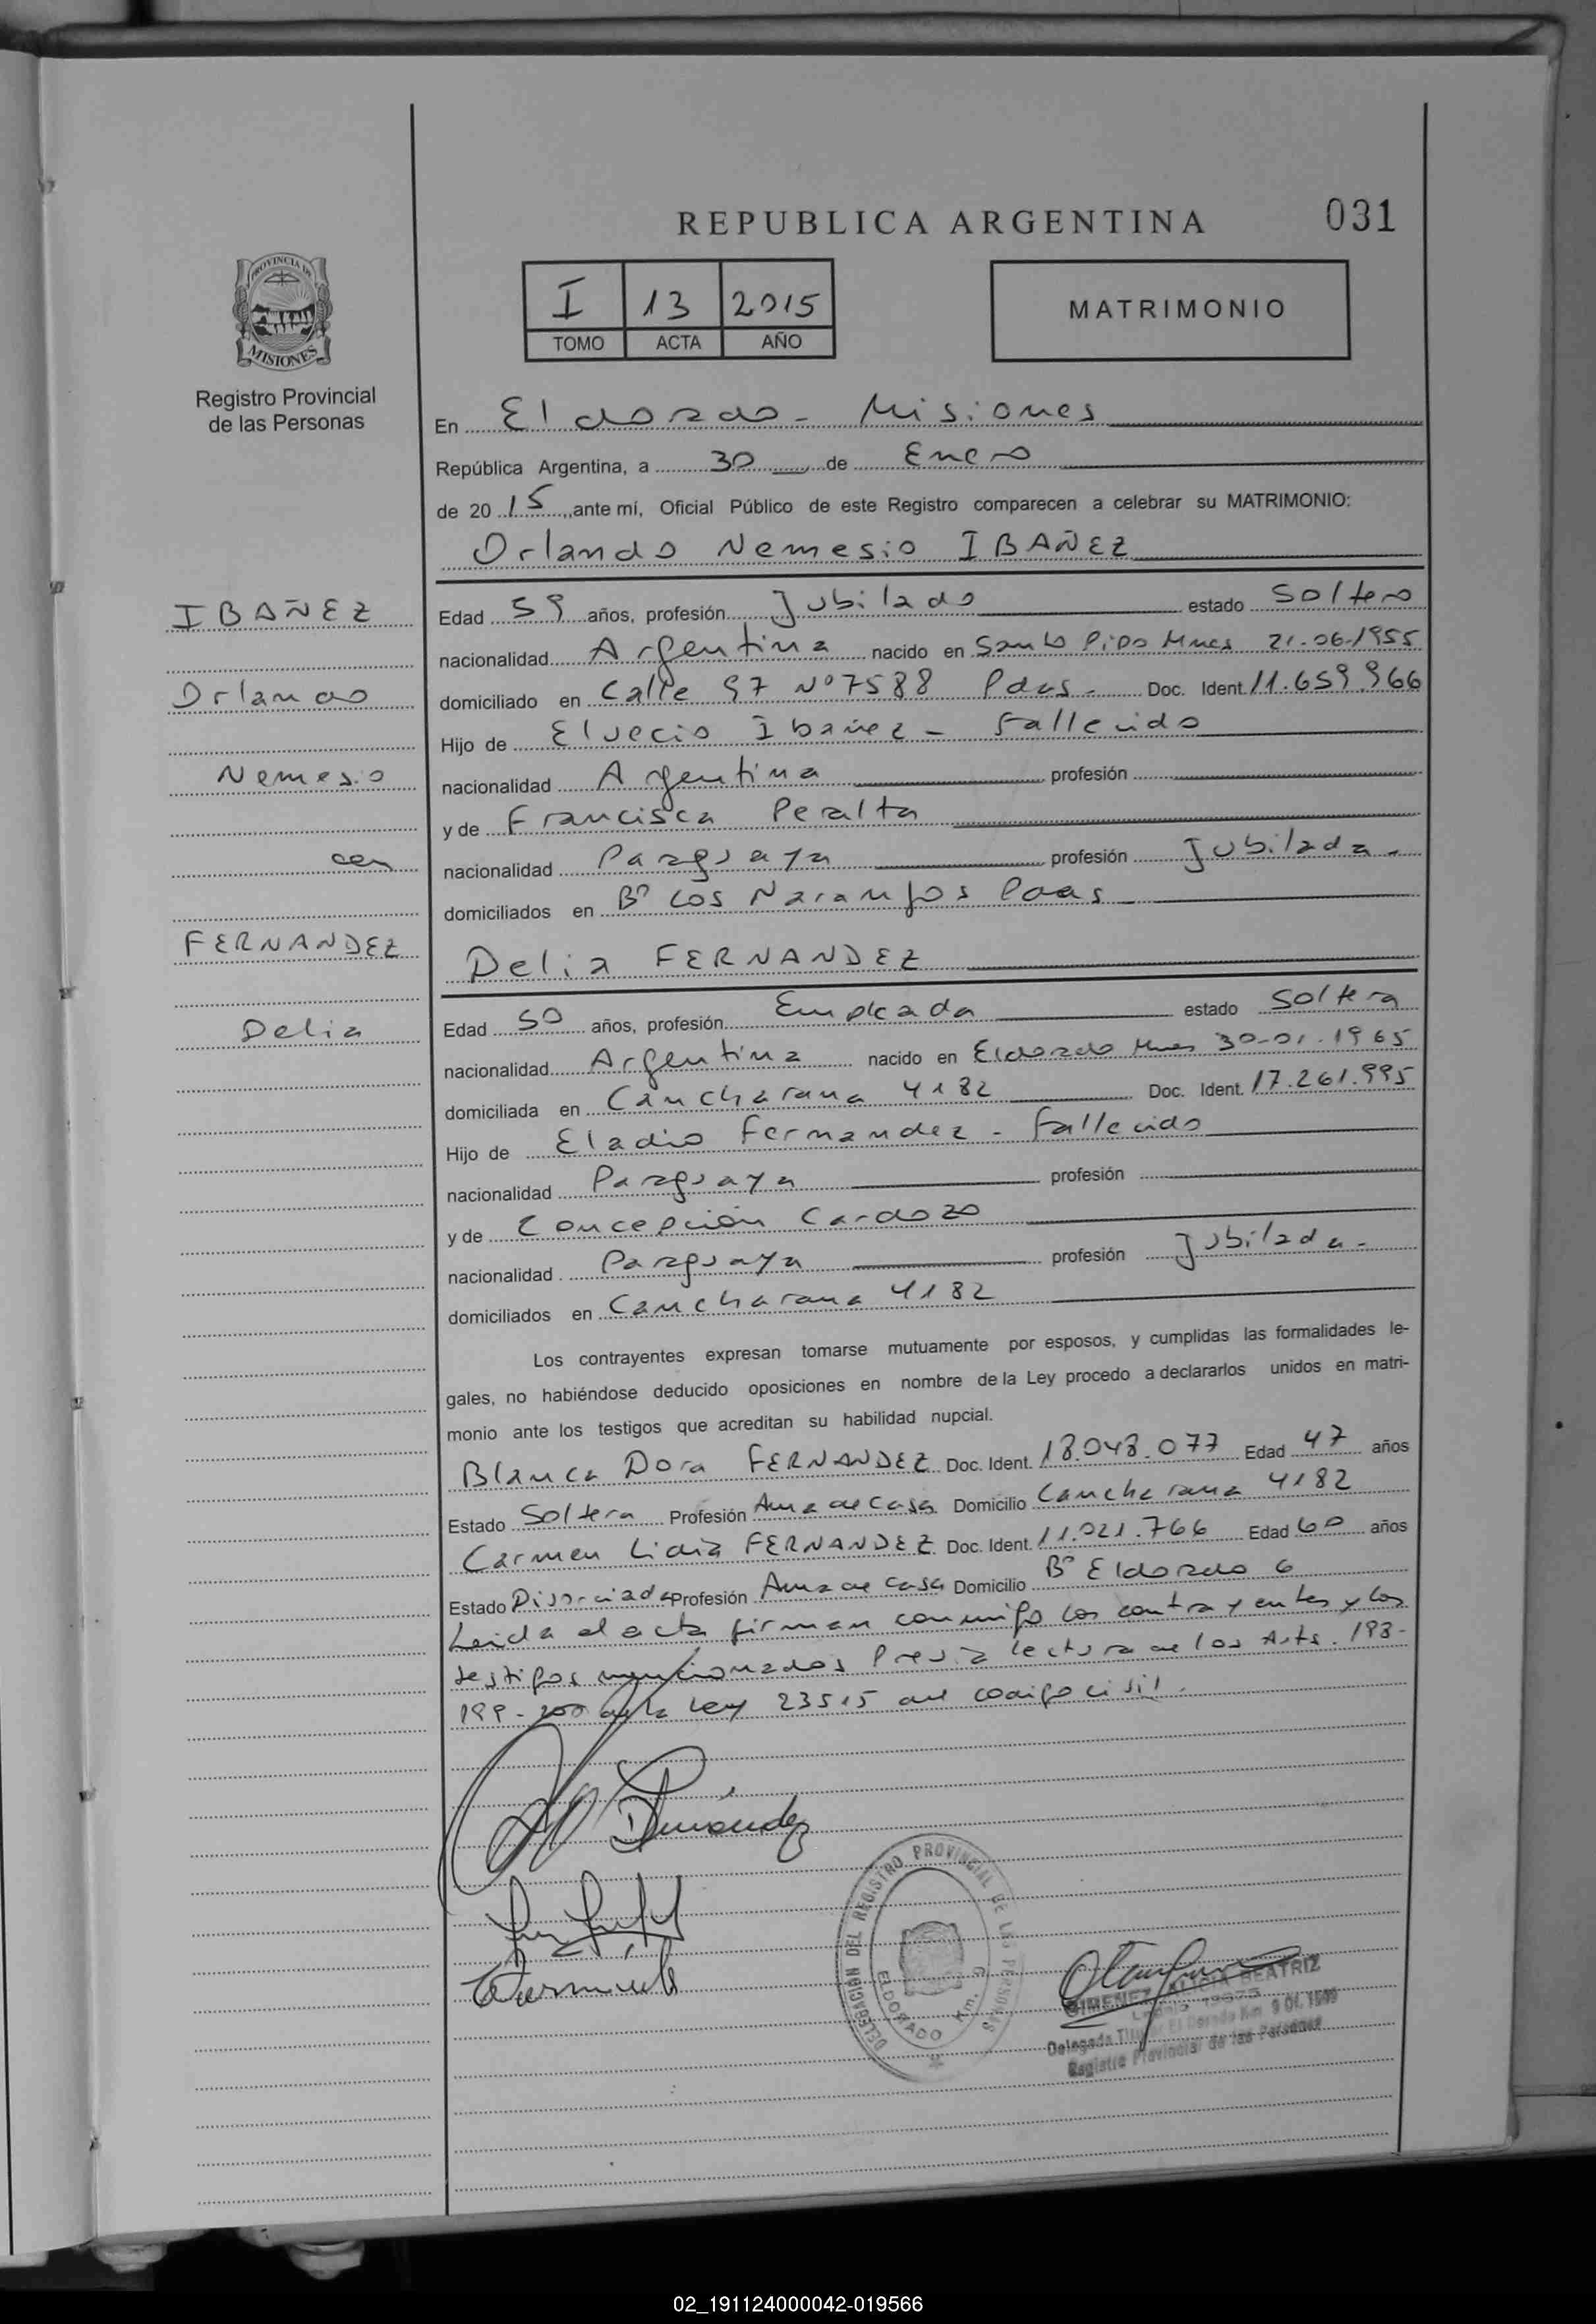 REPUBLICA ARGENTINA
031
PROVINCIA DE
MISIONES
Registro Provincial
de las Personas
I 13 2015
TOMO ACTA AÑO
MATRIMONIO
En Eldorado - Misiones
República Argentina, a 30 de Enero
de 20 15 ante mí, Oficial Público de este Registro comparecen a celebrar su MATRIMONIO:
Orlando Nemesio IBAÑEZ
IBAÑEZ
Orlando
Nemesio
con
FERNANDEZ
Delia
Edad 59 años, profesión Jubilado estado Soltero
nacionalidad Argentina nacido en Santo Pipo Mnes 21-06-1955
domiciliado en Calle 97 Nº 7588 Pdas - Doc. Ident. 11.659.966
Hijo de Elvecio Ibañez - Fallecido
nacionalidad Argentina profesión
y de Francisca Peralta
nacionalidad Paraguaya profesión Jubilada -
domiciliados en Bº Los Naranjos Pdas
Delia FERNANDEZ
Edad 50 años, profesión Empleada estado Soltera
nacionalidad Argentina nacido en Eldorado Mnes 30-01-1965
domiciliada en Cancharana 4182 Doc. Ident. 17.261.995
Hijo de Eladio Fernandez - Fallecido
nacionalidad Paraguaya profesión
y de Concepción Cardozo
nacionalidad Paraguaya profesión Jubilada -
domiciliados en Cancharana 4182
Los contrayentes expresan tomarse mutuamente por esposos, y cumplidas las formalidades le-
gales, no habiéndose deducido oposiciones en nombre de la Ley procedo a declararlos unidos en matri-
monio ante los testigos que acreditan su habilidad nupcial.
Blanca Dora FERNANDEZ Doc. Ident. 18.048.077 Edad 47 años
Estado Soltera Profesión Ama de Casa Domicilio Cancharana 4182
Carmen Lidia FERNANDEZ Doc. Ident. 11.021.766 Edad 60 años
Estado Divorciada Profesión Ama de Casa Domicilio Bº Eldorado 6
Leida el acta firman conmigo los contrayentes y los
testigos mencionados Previa lectura de los Arts. 198-
199-200 de la Ley 23515 del codigo civil.
DELEGACION DEL REGISTRO PROVINCIAL DE LAS PERSONAS
ELDORADO Km.
GIMENEZ ALICIA BEATRIZ
Delegada Titular El Dorado Km. 9 Of.
Registro Provincial de las Personas
02_191124000042-019566